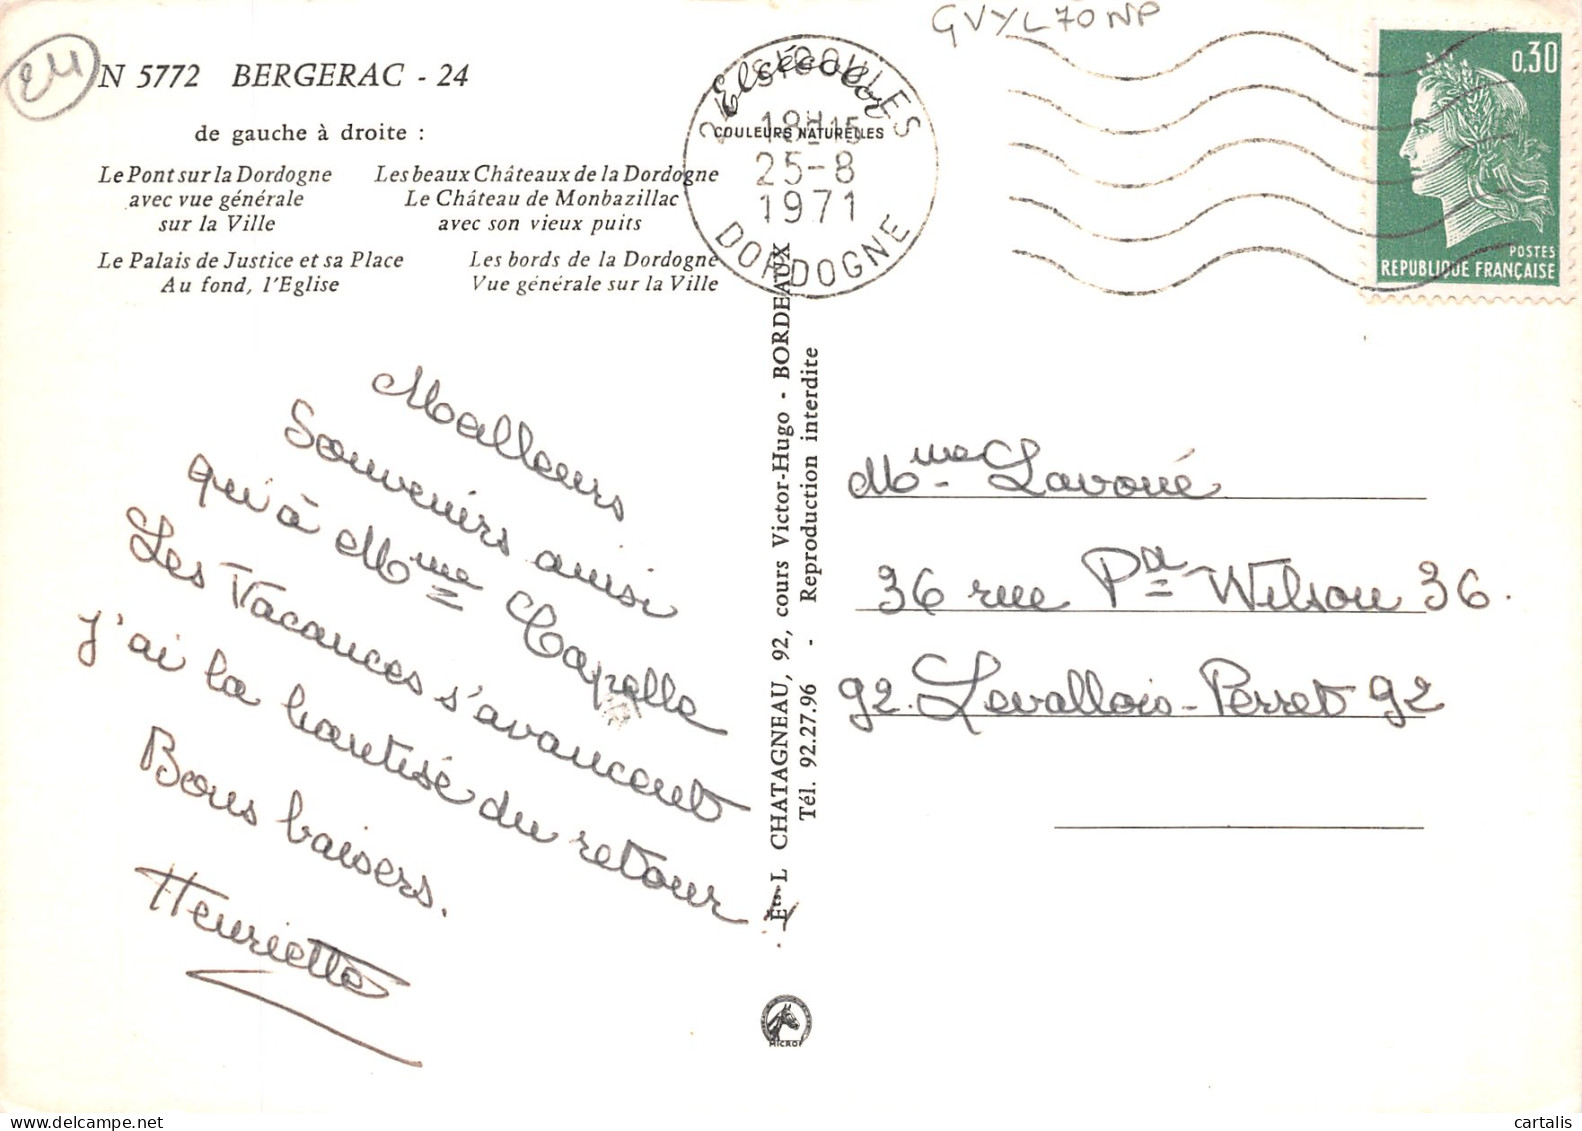 GVYL70NP
24
N 5772 BERGERAC - 24
de gauche à droite :
Le Pont sur la Dordogne
avec vue générale
sur la Ville
Les beaux Châteaux de la Dordogne
Le Château de Monbazillac
avec son vieux puits
Le Palais de Justice et sa Place
Au fond, l'Eglise
Les bords de la Dordogne
Vue générale sur la Ville
Elcécolor
COULEURS NATURELLES
24 SIGOULES
18H15
25-8
1971
DORDOGNE
0,30
POSTES
REPUBLIQUE FRANÇAISE
Meilleurs
Souvenirs ainsi
qu'à Mme Capelle
Les Vacances s'avancent
J'ai la hantise du retour
Bons baisers.
Henriette
Ets L CHATAGNEAU, 92, cours Victor-Hugo - BORDEAUX
Tél. 92.27.96 - Reproduction interdite
MICROF
Mme Lavoué
36 rue Pdt Wilson 36.
92. Levallois-Perret 92
cartalis